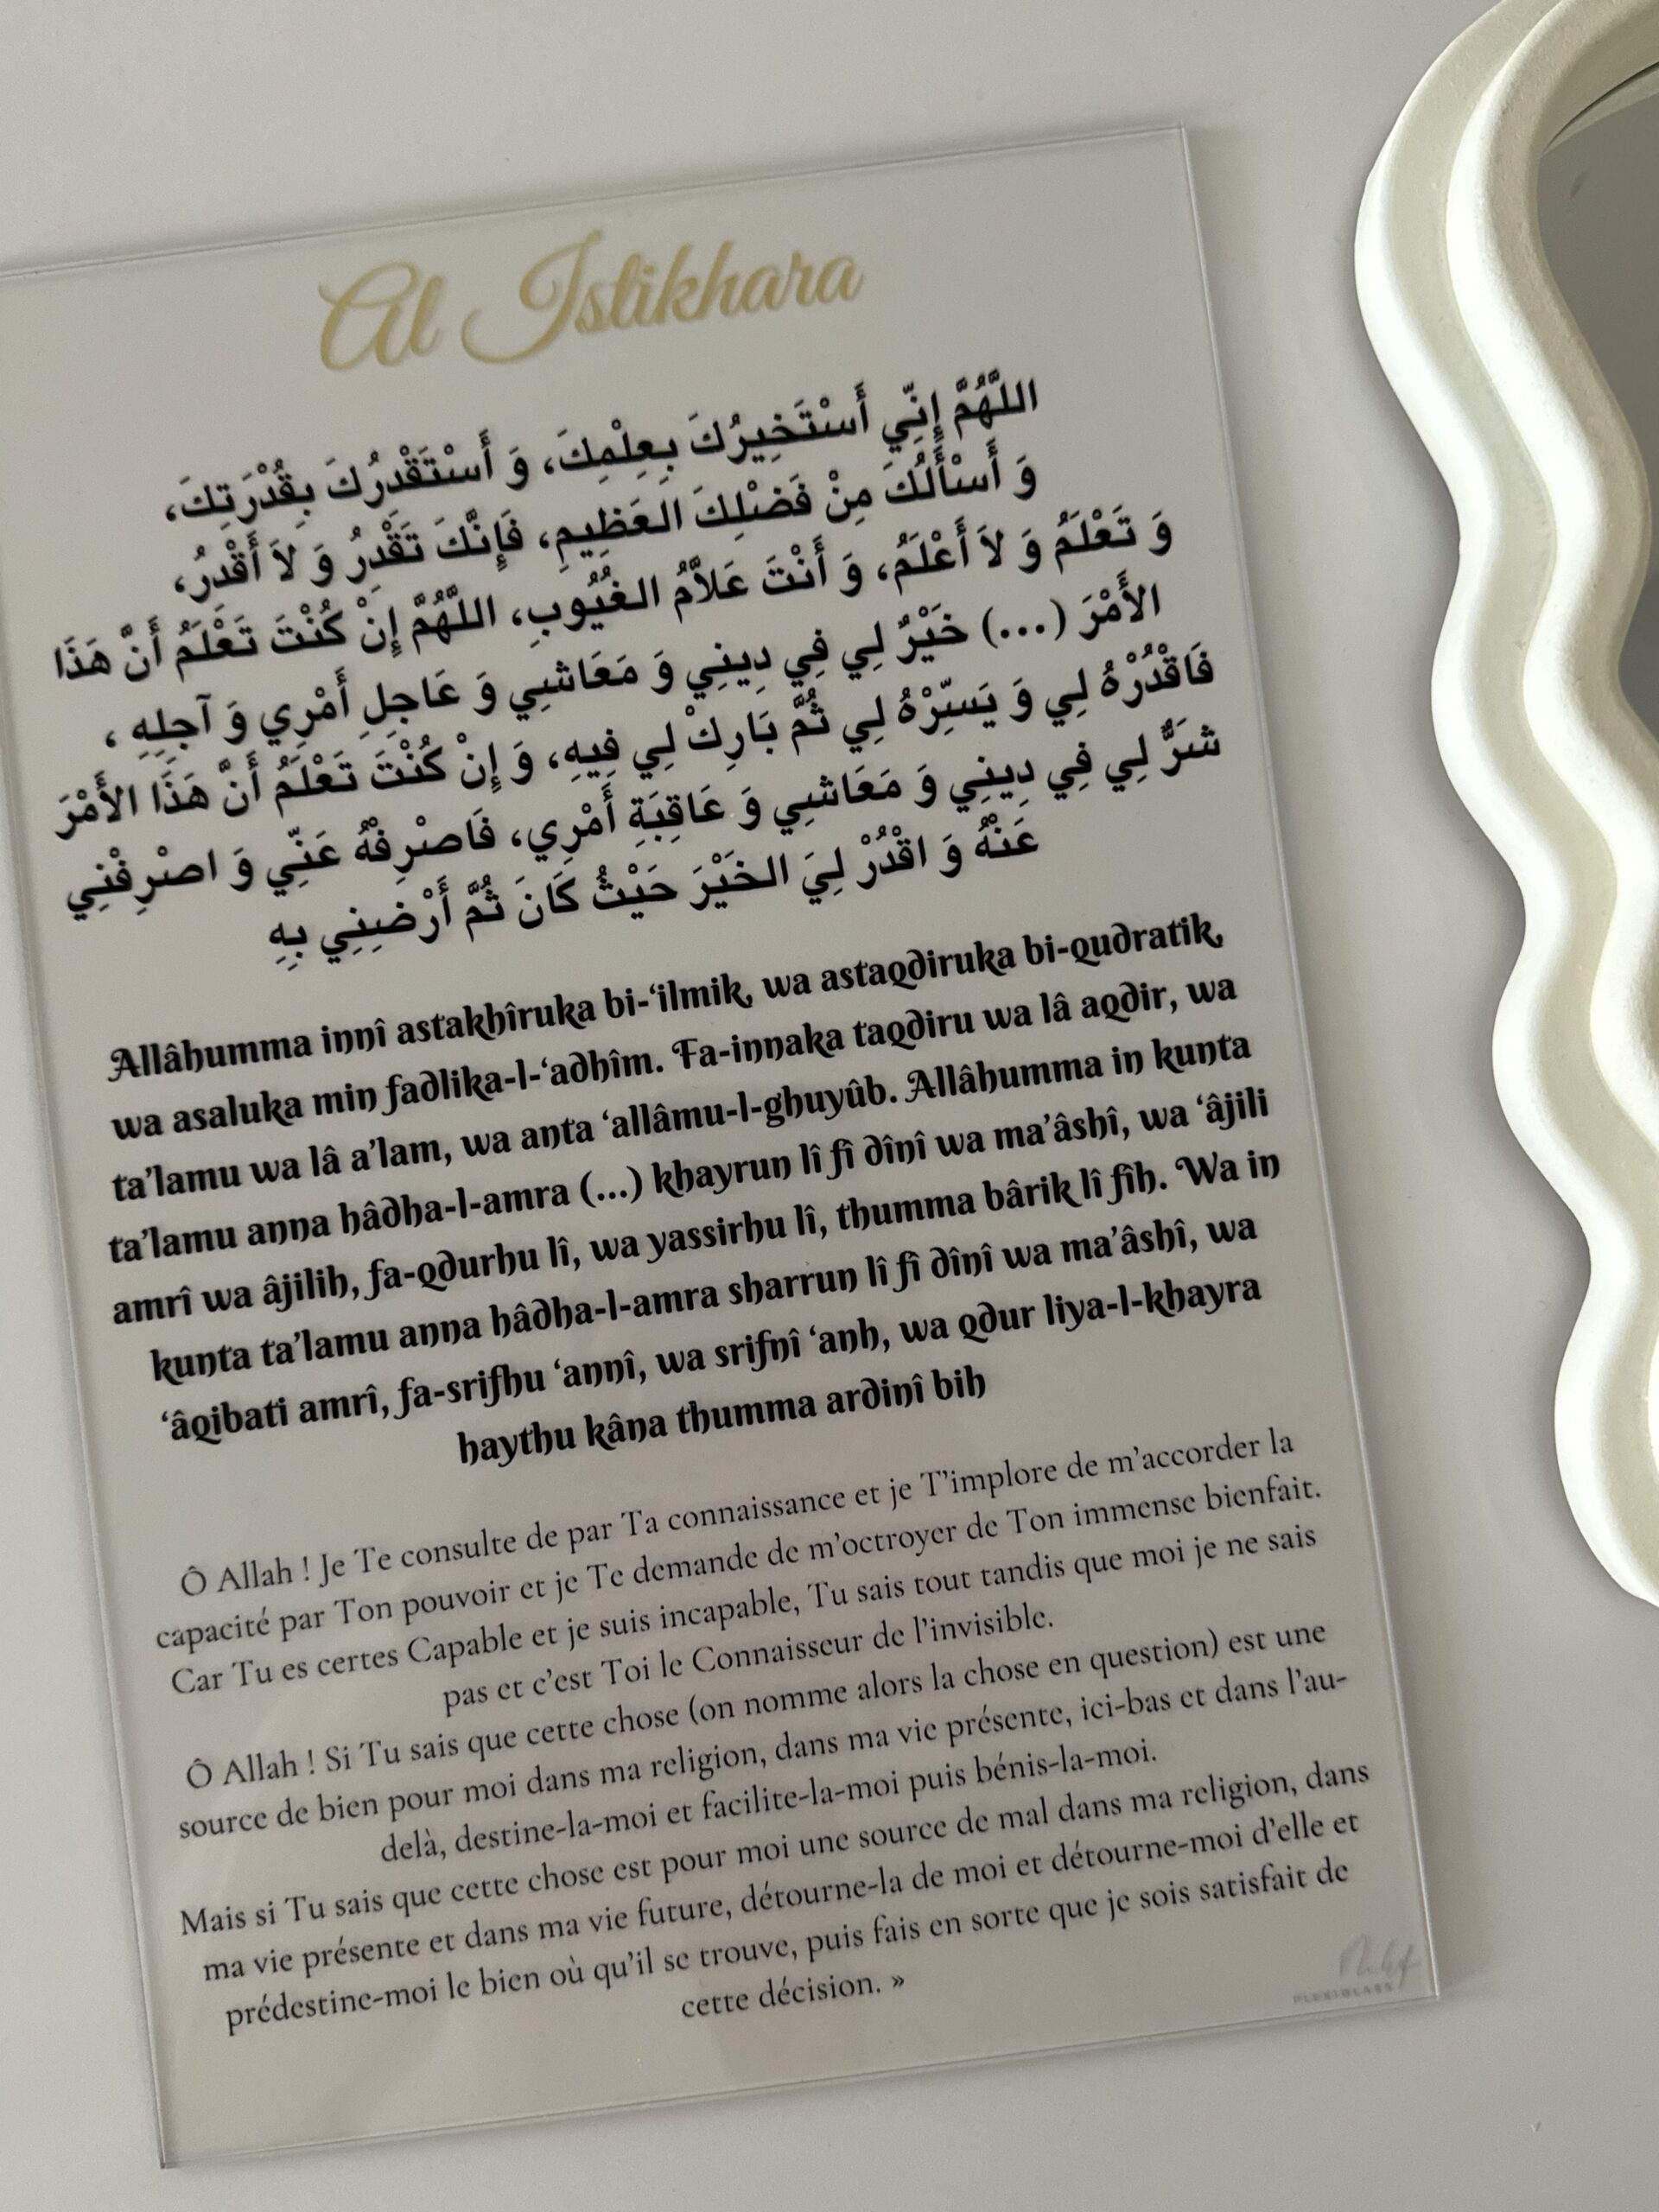 Al Istikhara
اللَّهُمَّ إِنِّي أَسْتَخِيرُكَ بِعِلْمِكَ، وَ أَسْتَقْدِرُكَ بِقُدْرَتِكَ،
وَ أَسْأَلُكَ مِنْ فَضْلِكَ العَظِيمِ، فَإِنَّكَ تَقْدِرُ وَ لاَ أَقْدِرُ،
وَ تَعْلَمُ وَ لاَ أَعْلَمُ، وَ أَنْتَ عَلاَّمُ الغُيُوبِ، اللَّهُمَّ إِنْ كُنْتَ تَعْلَمُ أَنَّ هَذَا
الأَمْرَ (...) خَيْرٌ لِي فِي دِينِي وَ مَعَاشِي وَ عَاجِلِ أَمْرِي وَ آجِلِهِ ،
فَاقْدُرْهُ لِي وَ يَسِّرْهُ لِي ثُمَّ بَارِكْ لِي فِيهِ، وَ إِنْ كُنْتَ تَعْلَمُ أَنَّ هَذَا الأَمْرَ
شَرٌّ لِي فِي دِينِي وَ مَعَاشِي وَ عَاقِبَةِ أَمْرِي، فَاصْرِفْهُ عَنِّي وَ اصْرِفْنِي
عَنْهُ وَ اقْدُرْ لِيَ الخَيْرَ حَيْثُ كَانَ ثُمَّ أَرْضِنِي بِهِ
Allâhumma innî astakhîruka bi-‘ilmik, wa astaqdiruka bi-qudratik,
wa asaluka min fadlika-l-‘adhîm. Fa-innaka taqdiru wa lâ aqdir, wa
ta’lamu wa lâ a’lam, wa anta ‘allâmu-l-ghuyûb. Allâhumma in kunta
ta’lamu anna hâdha-l-amra (...) khayrun lî fî dînî wa ma’âshî, wa ‘âjili
amrî wa âjilih, fa-qdurhu lî, wa yassirhu lî, thumma bârik lî fîh. Wa in
kunta ta’lamu anna hâdha-l-amra sharrun lî fî dînî wa ma’âshî, wa
‘âqibati amrî, fa-srifhu ‘annî, wa srifnî ‘anh, wa qdur liya-l-khayra
haythu kâna thumma ardinî bih
Ô Allah ! Je Te consulte de par Ta connaissance et je T’implore de m’accorder la
capacité par Ton pouvoir et je Te demande de m’octroyer de Ton immense bienfait.
Car Tu es certes Capable et je suis incapable, Tu sais tout tandis que moi je ne sais
pas et c’est Toi le Connaisseur de l’invisible.
Ô Allah ! Si Tu sais que cette chose (on nomme alors la chose en question) est une
source de bien pour moi dans ma religion, dans ma vie présente, ici-bas et dans l’au-
delà, destine-la-moi et facilite-la-moi puis bénis-la-moi.
Mais si Tu sais que cette chose est pour moi une source de mal dans ma religion, dans
ma vie présente et dans ma vie future, détourne-la de moi et détourne-moi d’elle et
prédestine-moi le bien où qu’il se trouve, puis fais en sorte que je sois satisfait de
cette décision. »